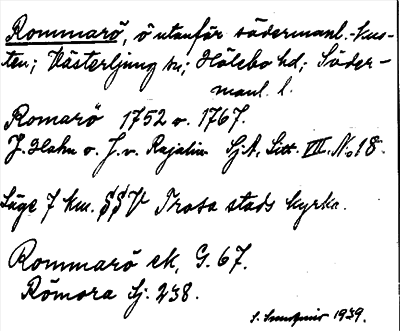 Rommarö, ö utanför södermanl. kus-
ten; Västerljung sn; Hölebo hd; Söder-
manl. l.
Romarö 1752 o. 1767.
J. Hahn o. J. v. Rajalin Sj.A. Litt. VII. No 18.
Läge 7 km. SSV Trosa stads kyrka.
Rommarö ek, G. 67.
Römora Sj. 238.
1939.